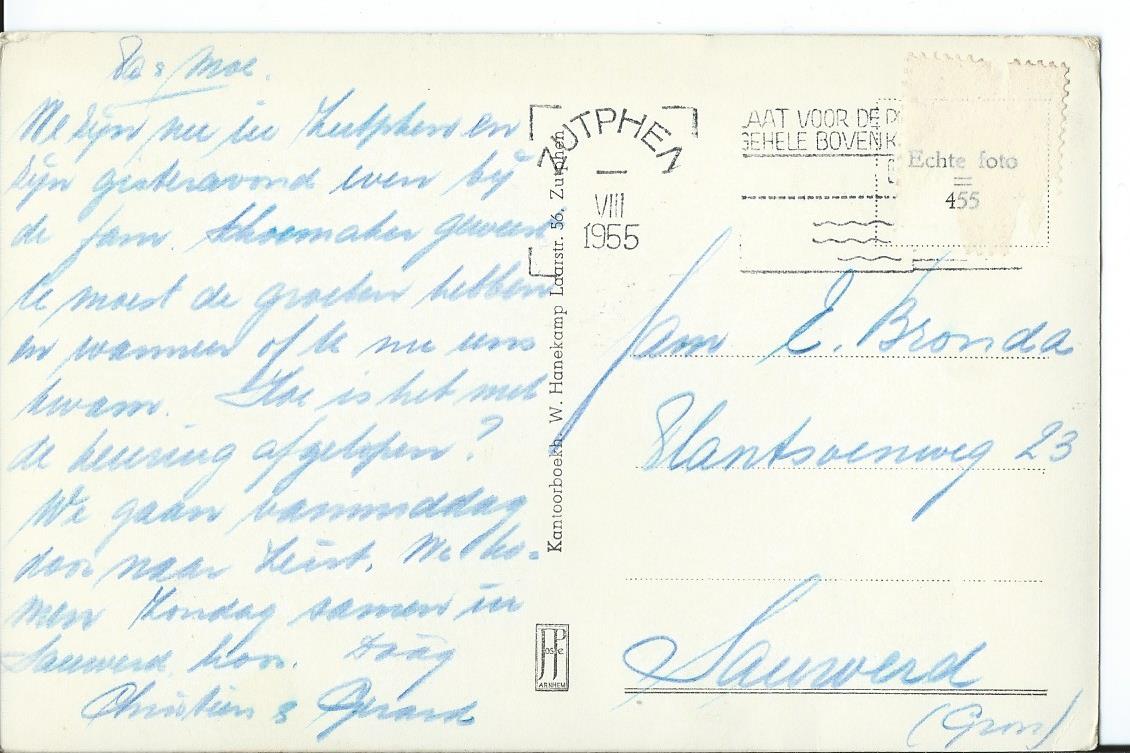 Pa & Moe.
We zijn nu in Zutphen en
zijn gisteravond even bij
de fam. Schoemaker geweest
Ie moest de groeten hebben
en wanneer of ie nu eens
kwam. Hoe is het met
de keuring afgelopen?
We gaan vanmiddag
door naar Zeist. We ko=
men Zondag samen in
Sauwerd, hoor. Daag
Christien & Gerard
Kantoorboekh. W. Hanekamp Laarstr. 56, Zutphen
JosPe
ARNHEM
ZUTPHEN
VIII
1955
AAT VOOR DE P
GEHELE BOVENK
Echte foto
455
Fam E. Bronda
Plantsoenweg 23
Sauwerd
(Gron)